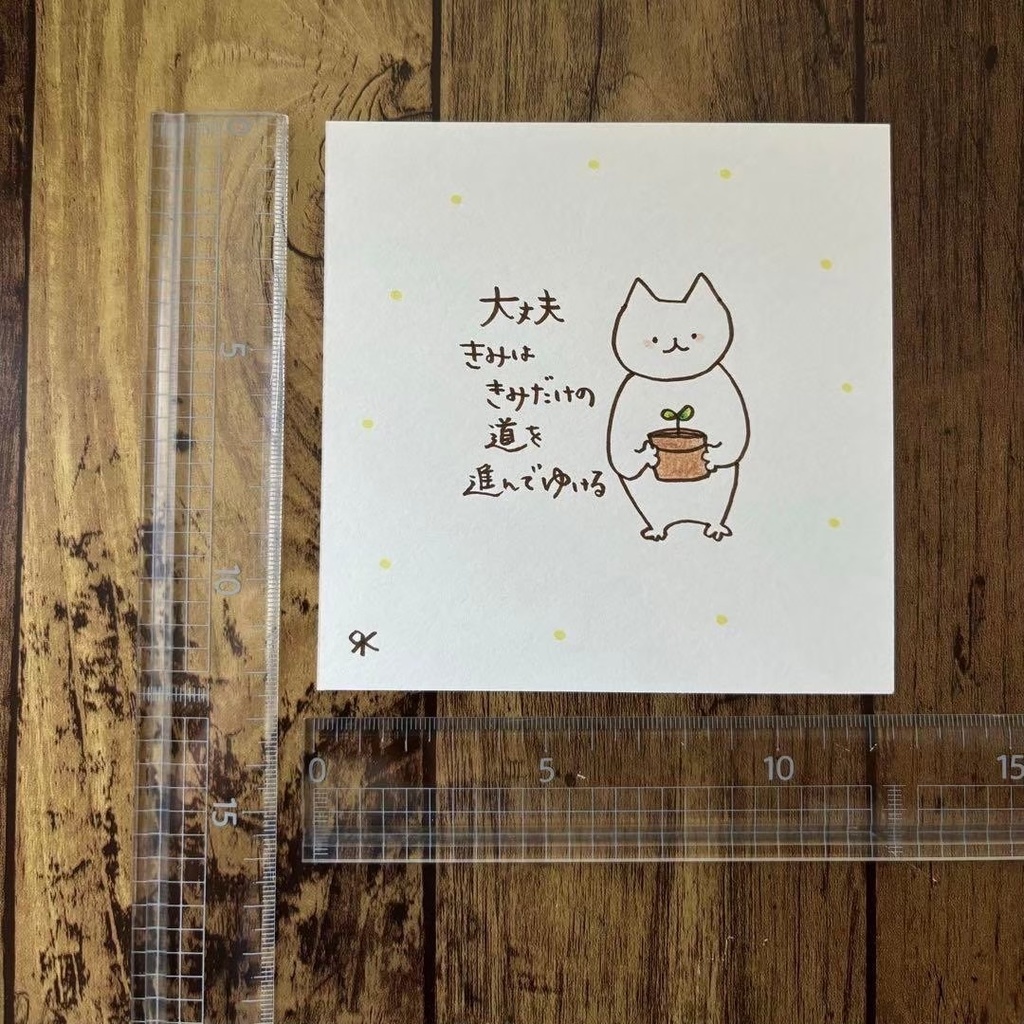 大丈夫
きみは
きみだけの
道を
進んでゆける
0
5
10
15
0 5 10 15